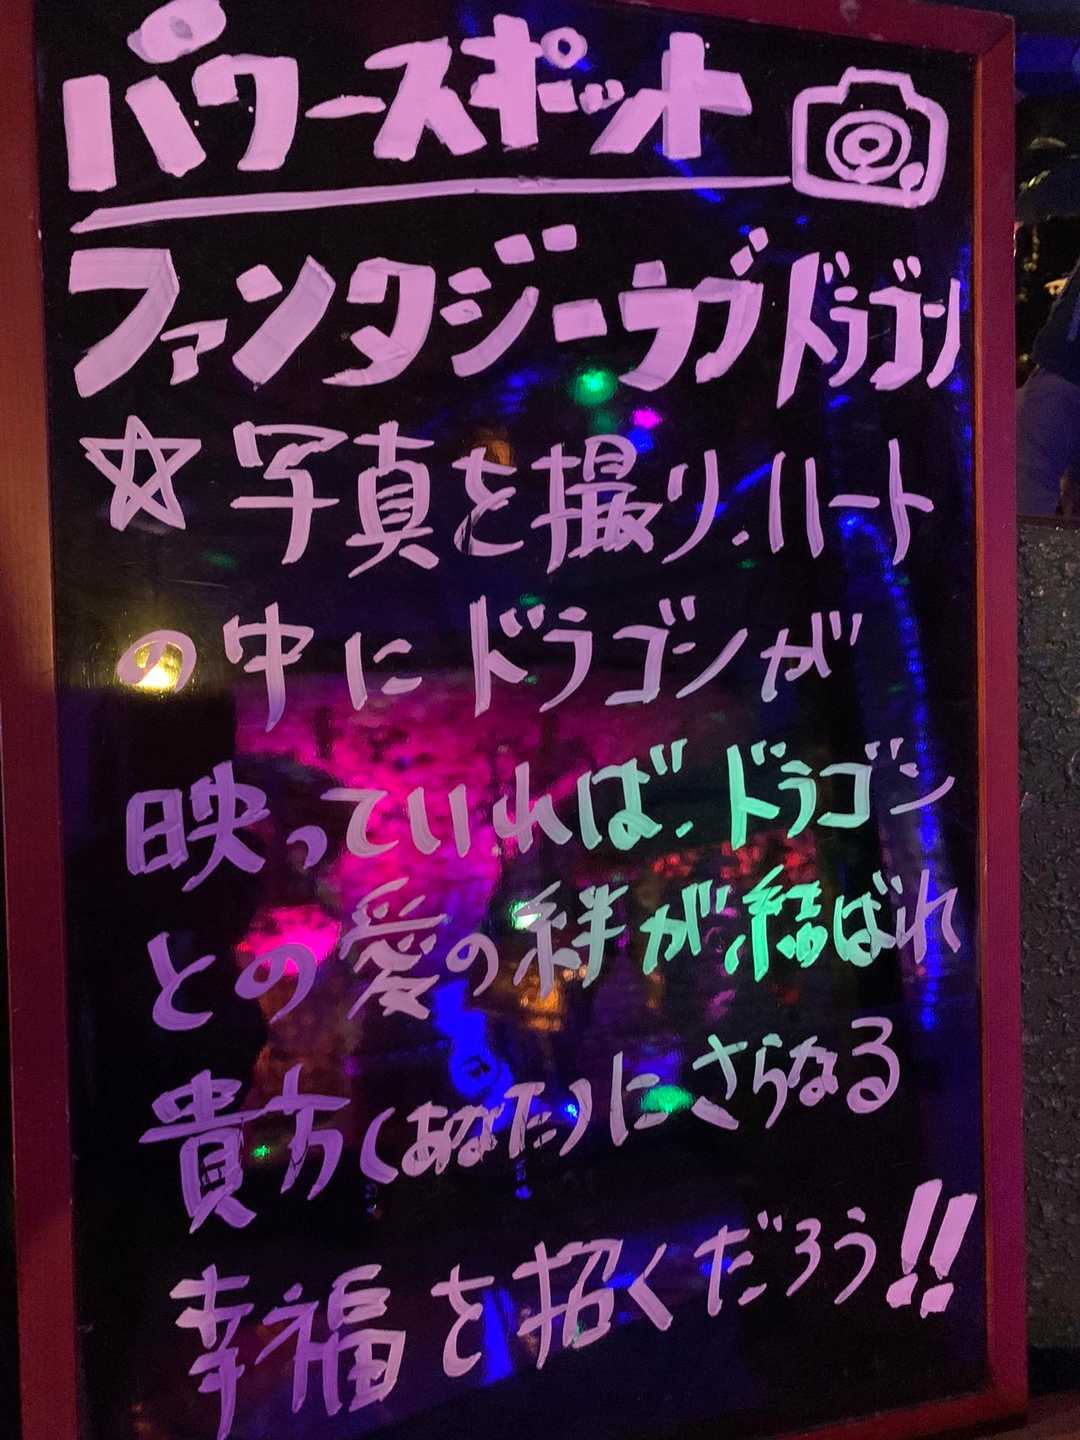 パワースポット
ファンタジーラブドラゴン
☆写真を撮り、ハート
の中にドラゴンが
映っていれば、ドラゴン
との愛の絆が結ばれ
貴方(あなた)にさらなる
幸福を招くだろう!!